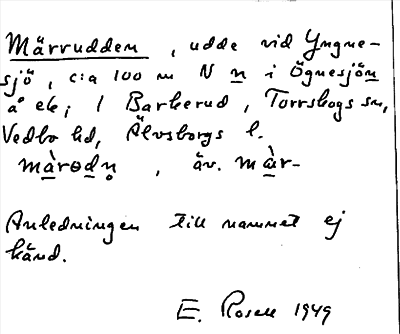 Märrudden, udde vid Yngne-
sjö, c:a 100 m N n i Ögnesjön
å ek; / Barkerud, Torrskogs sn,
Vedbo hd, Älvsborgs l.
màrɵdn̥, äv. màr-
Anledningen till namnet ej
känd.
E. Rosell 1949